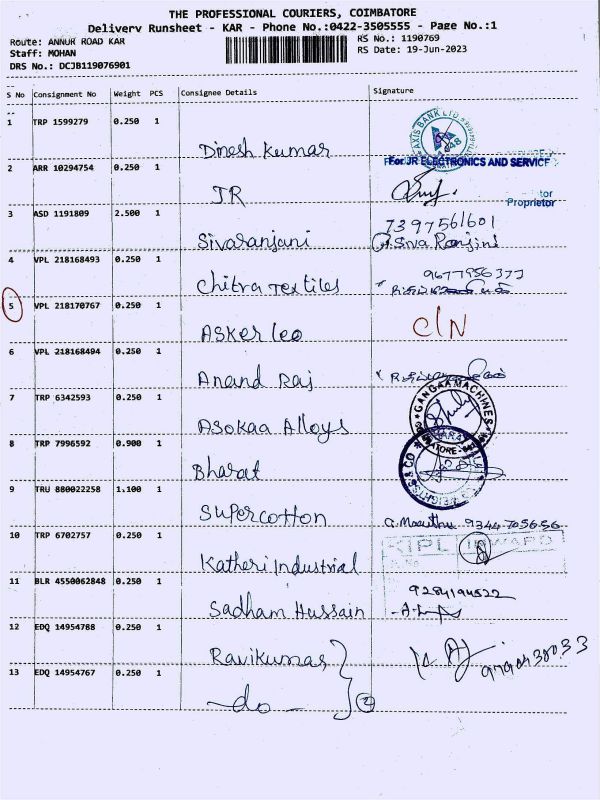 THE PROFESSIONAL COURIERS, COIMBATORE
Delivery Runsheet - KAR - Phone No.:0422-3505555 - Page No.:1
Route: ANNUR ROAD KAR RS No.: 1190769
Staff: MOHAN RS Date: 19-Jun-2023
DRS No.: DCJB119076901
S No Consignment No Weight PCS Consignee Details Signature
1 TRP 1599279 0.250 1 Dinesh Kumar AXIS BANK LTD
For JR ELECTRONICS AND SERVICE
2 ARR 10294754 0.250 1 JR
Proprietor
3 ASD 1191809 2.500 1 Sivaranjani 7397561601
Siva Ranjini
4 VPL 218168493 0.250 1 Chitra Textiles 9677956373
5 VPL 218170767 0.250 1 Asker leo C/N
6 VPL 218168494 0.250 1 Anand Raj
7 TRP 6342593 0.250 1 Asokaa Alloys GANGAA MACHINES
8 TRP 7996592 0.900 1 Bharat
9 TRU 880022258 1.100 1 Supercotton 9344705656
10 TRP 6702757 0.250 1 Katheri Industrial KIPL INWARD
11 BLR 4550062848 0.250 1 Sadham Hussain
12 EDQ 14954788 0.250 1 Ravikumar
13 EDQ 14954767 0.250 1 -do- 2